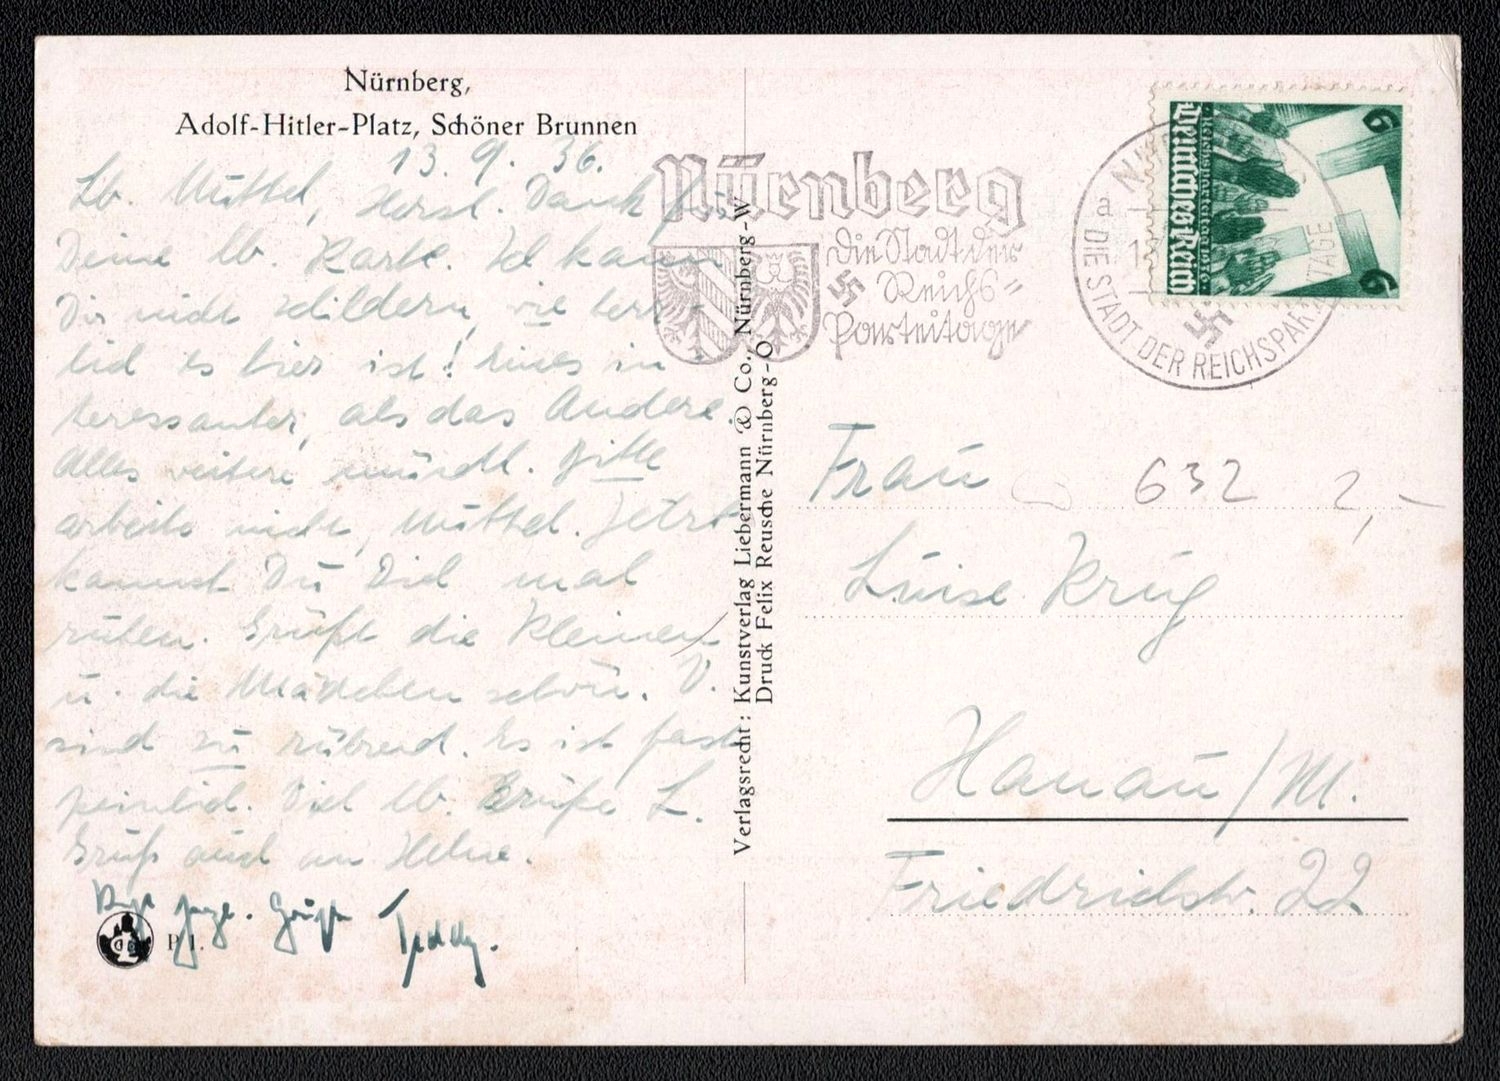 Nürnberg,
Adolf-Hitler-Platz, Schöner Brunnen
13. 9. 36.
Lb. Muttel, Herzl. Dank für
Deine lb. Karte. Ich kann
Dir nicht schildern, wie herr-
lich es hier ist! Eines in-
teressanter, als das Andere.
Alles weitere mündl. Bitte
arbeite nicht, Muttel. Jetzt
kannst Du Dich mal
ruhen. Grüßt die Kleinen
u. die Mädchen schön. V.
sind zu rührend. Es ist fast
peinlich. Viel lb. Grüße L.
Gruß auch an
Grüße Teddy.
P. 1.
Verlagsrecht: Kunstverlag Liebermann & Co., Nürnberg-W
Druck Felix Reusche Nürnberg-O
Nürnberg
Die Stadt der
Reichs-
Parteitage
a
DIE STADT DER REICHSPARTEITAGE
6
Reichsparteitag 1936
Deutsches Reich
6
Frau
632 2,-
Luise Krug
Hanau/M.
Friedrichstr. 22